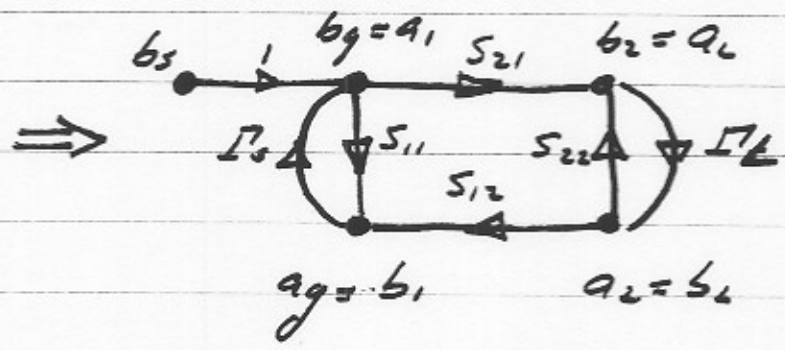 ⇒ bs 1 bg = a1 S21 b2 = aL
Γs S11 S22 ΓL
S12
ag = b1 a2 = bL